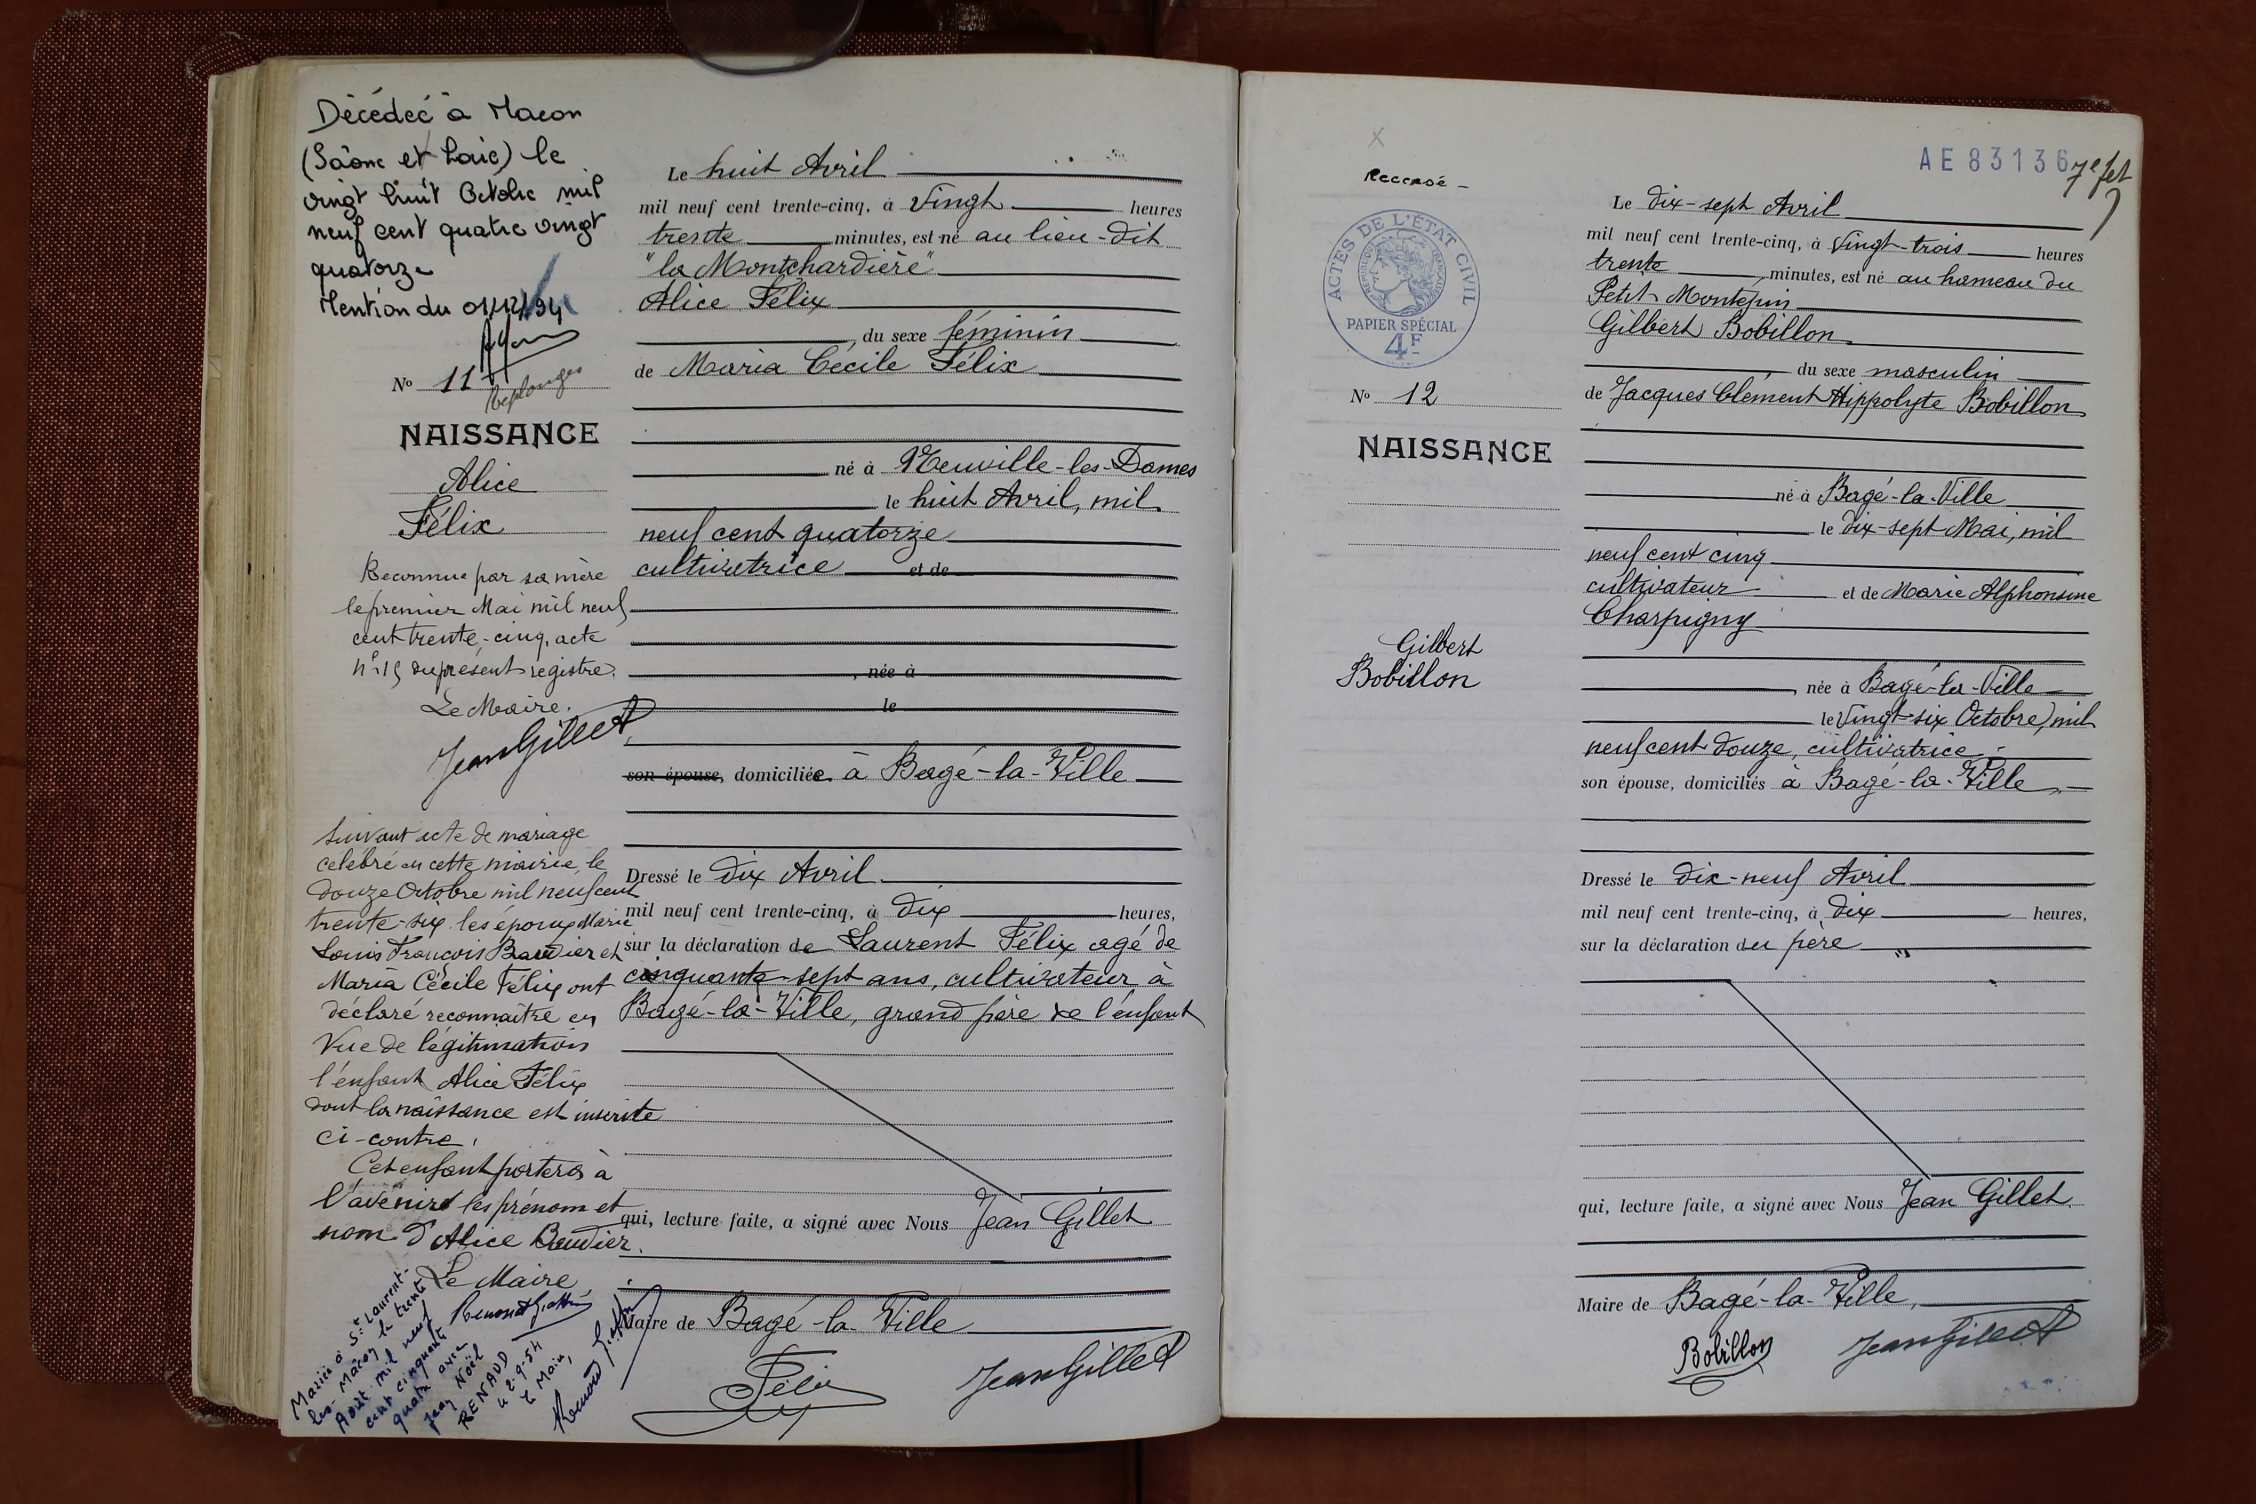 Décédée à Macon
(Saône et Loire) le
vingt huit Octobre mil
neuf cent quatre vingt
quatorze
Mention du 01/12/94
N° 11
Replonges
NAISSANCE
Alice
Félix
Reconnue par sa mère
le premier Mai mil neuf
cent trente-cinq, acte
n° 15 du présent registre.
Le Maire.
Jean Gillet
Suivant acte de mariage
célébré en cette mairie, le
douze Octobre mil neuf cent
trente-six les époux Marie
Louis François Baudier et
Maria Cécile Félix ont
déclaré reconnaître en
vue de légitimation
l'enfant Alice Félix
dont la naissance est inscrite
ci-contre.
Cet enfant portera à
l'avenir les prénom et
nom d'Alice Baudier.
Le Maire
Mariée à St Laurent-
lès-Mâcon le trente
Août mil neuf
cent cinquante
quatre avec
Jean Noël
RENAUD
le 2-9-54
Le Maire,
Le huit Avril
mil neuf cent trente-cinq, à vingt heures
trente minutes, est né au lieu-dit
"la Montchardière"
Alice Félix
, du sexe féminin
de Maria Cécile Félix
né à Neuville-les-Dames
le huit Avril, mil
neuf cent quatorze
cultivatrice et de
, née à
le
son épouse, domiciliée à Bagé-la-Ville
Dressé le dix Avril
mil neuf cent trente-cinq, à dix heures,
sur la déclaration de Laurent Félix agé de
cinquante-sept ans, cultivateur à
Bagé-la-Ville, grand père de l'enfant
qui, lecture faite, a signé avec Nous Jean Gillet
Maire de Bagé-la-Ville
Félix
Jean Gillet
AE 83136
7e fet
Recensé
ACTES DE L'ÉTAT CIVIL
PAPIER SPÉCIAL
4F
N° 12
NAISSANCE
Gilbert
Bobillon
Le dix-sept Avril
mil neuf cent trente-cinq, à vingt-trois heures
trente minutes, est né au hameau du
Petit Montépin
Gilbert Bobillon
, du sexe masculin
de Jacques Clément Hippolyte Bobillon
né à Bagé-la-Ville
le dix-sept Mai, mil
neuf cent cinq
cultivateur et de Marie Alphonsine
Charpigny
, née à Bagé-la-Ville
le vingt-six Octobre, mil
neuf cent douze, cultivatrice
son épouse, domiciliés à Bagé-la-Ville,
Dressé le dix-neuf Avril
mil neuf cent trente-cinq, à dix heures,
sur la déclaration du père
qui, lecture faite, a signé avec Nous Jean Gillet
Maire de Bagé-la-Ville,
Bobillon
Jean Gillet